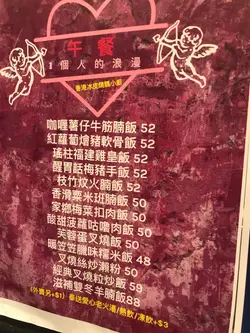 午餐
1個人的浪漫
香滑冰皮燒鵝小廚
咖喱薯仔牛筋腩飯 52
紅蘿蔔燴豬軟骨飯 52
瑤柱福建雞皇飯 52
醒胃話梅豬手飯 52
枝竹炆火腩飯 50
香滑粟米斑腩飯 50
家鄉梅菜扣肉飯 50
酸甜菠蘿咕嚕肉飯 50
芙蓉蛋叉燒飯 50
暖笠笠臘味糯米飯 48
叉燒絲炒瀨粉 50
經典叉燒粒炒飯 59
滋補雙冬羊腩飯88
(外賣另+$1) 奉送愛心老火湯/熱飲/凍飲+$3